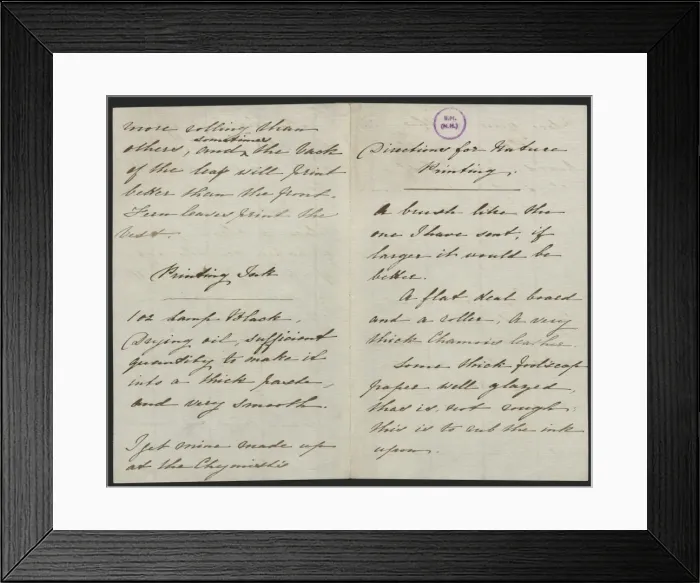 more rolling than
sometimes
others, and, the back
of the leaf will print
better than the front.
Fern leaves print the
best.
Printing Ink
1 oz Lamp Black,
Drying oil, sufficient
quantity to make it
into a thick paste,
and very smooth.
I get mine made up
at the Chymist's
B.M.
(N.H.)
Directions for Nature
Printing.
A brush like the
one I have sent, if
larger it would be
better.
A flat deal board
and a roller, A very
thick Chamois leather.
Some thick foolscap
paper well glazed,
that is, not rough:
this is to rub the ink
upon.